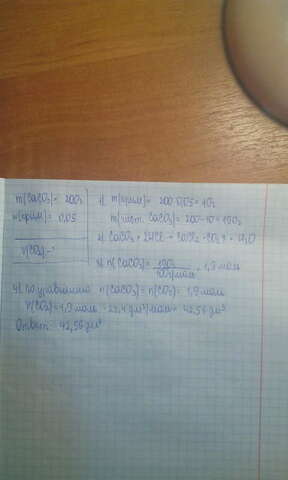 m(CaCO₃) = 200г
w(прим) = 0,05
V(CO₂) - ?
1) m(прим) = 200·0,05 = 10г
m(чист. CaCO₃) = 200 - 10 = 190г
2) CaCO₃ + 2HCl = CaCl₂ + CO₂↑ + H₂O
3) n(CaCO₃) = 190г / 100г/моль = 1,9 моль
4) по уравнению n(CaCO₃) = n(CO₂) = 1,9 моль
V(CO₂) = 1,9 моль · 22,4 дм³/моль = 42,56 дм³
Ответ: 42,56 дм³